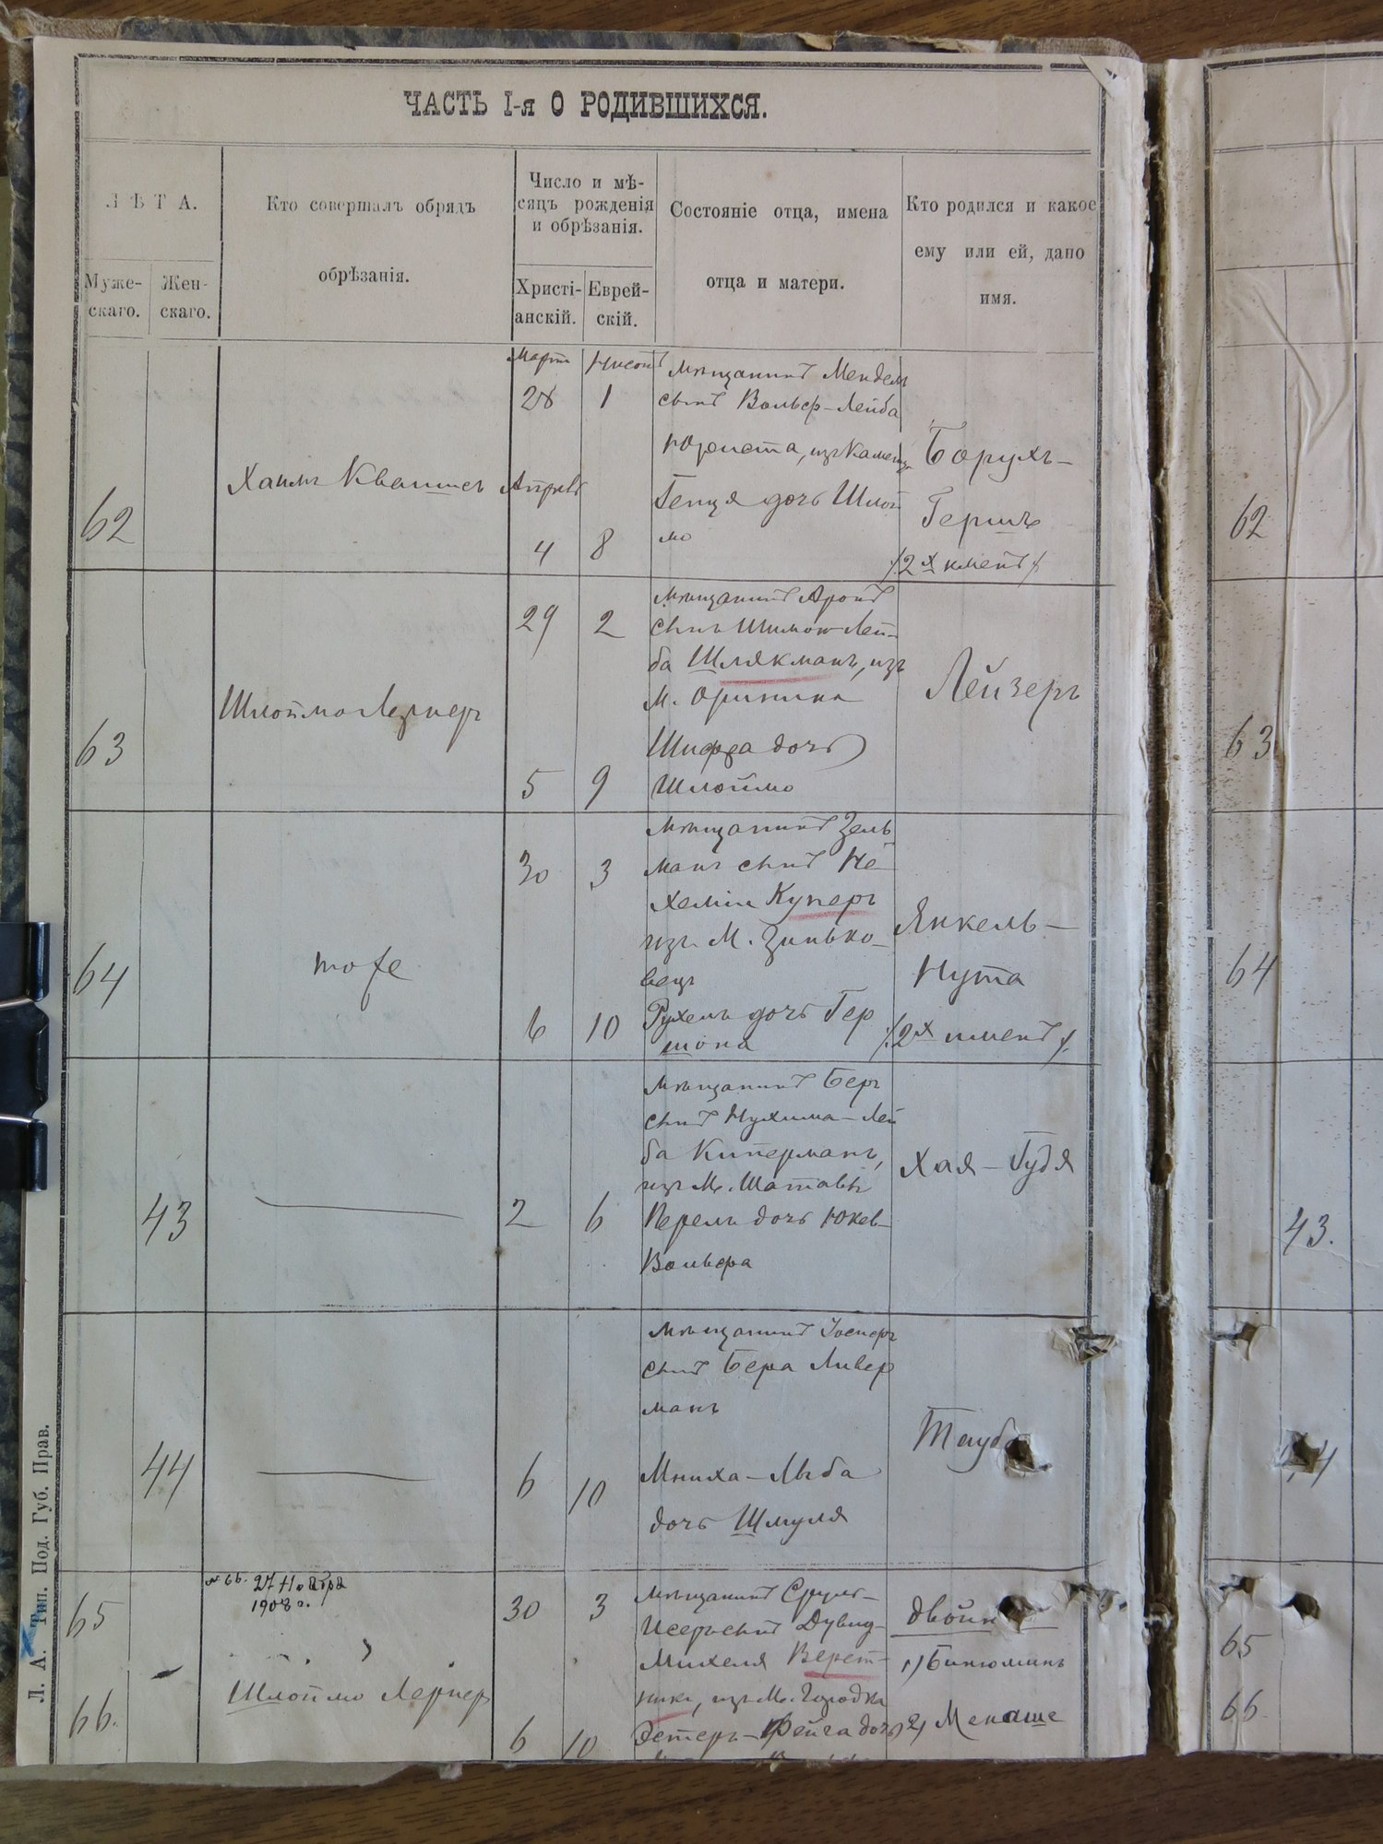 ЧАСТЬ I-я О РОДИВШИХСЯ.
ЛѢТА.
Муже-
скаго.
Жен-
скаго.
Кто совершалъ обрядъ
обрѣзанія.
Число и мѣ-
сяцъ рожденія
и обрѣзанія.
Христі-
анскій.
Еврей-
скій.
Состояніе отца, имена
отца и матери.
Кто родился и какое
ему или ей, дано
имя.
62
Хаимъ
Мартъ
28
Апрѣль
4
1
8
Мѣщанинъ Мендель
сынъ Вольф-Лейба
дочь Шлой
мо
Борухъ-
Гершъ
/2х именъ/
62
63
Шлоймо Лернеръ
29
5
2
9
Мѣщанинъ Аронъ
сынъ Шимон-Лей-
ба Шлякманъ, изъ
М. Оринина
Шифра дочь
Шлоймо
Лейзеръ
63
64
тоже
30
6
3
10
Мѣщанинъ Зель
манъ сынъ Не
хеміи Куперъ
изъ М. Зинько-
вецъ
Рухель дочь Гер
шона
Янкель-
Нута
/2х именъ/.
64
43
2
6
Мѣщанинъ Беръ
сынъ Нухима-Лей
ба Киперманъ,
изъ М. Шатавы
Перель дочь
Вольфа
Хая-Гудя
43.
44
6
10
Мѣщанинъ
сынъ Бера Ливер
манъ
дочь Шмуля
Тауба
44
65
66.
№ 66. 27 Ноября
1908 г.
Шлоймо Лернеръ
30
6
3
10
Мѣщанинъ Сруль-
сынъ Дувид-
Михеля Верет-
никъ, изъ М. Городка
Эстеръ-Фейга дочь
двойн
1) Бинюминъ
2) Менаше
65
66
Л. А. Тип. Под. Губ. Прав.